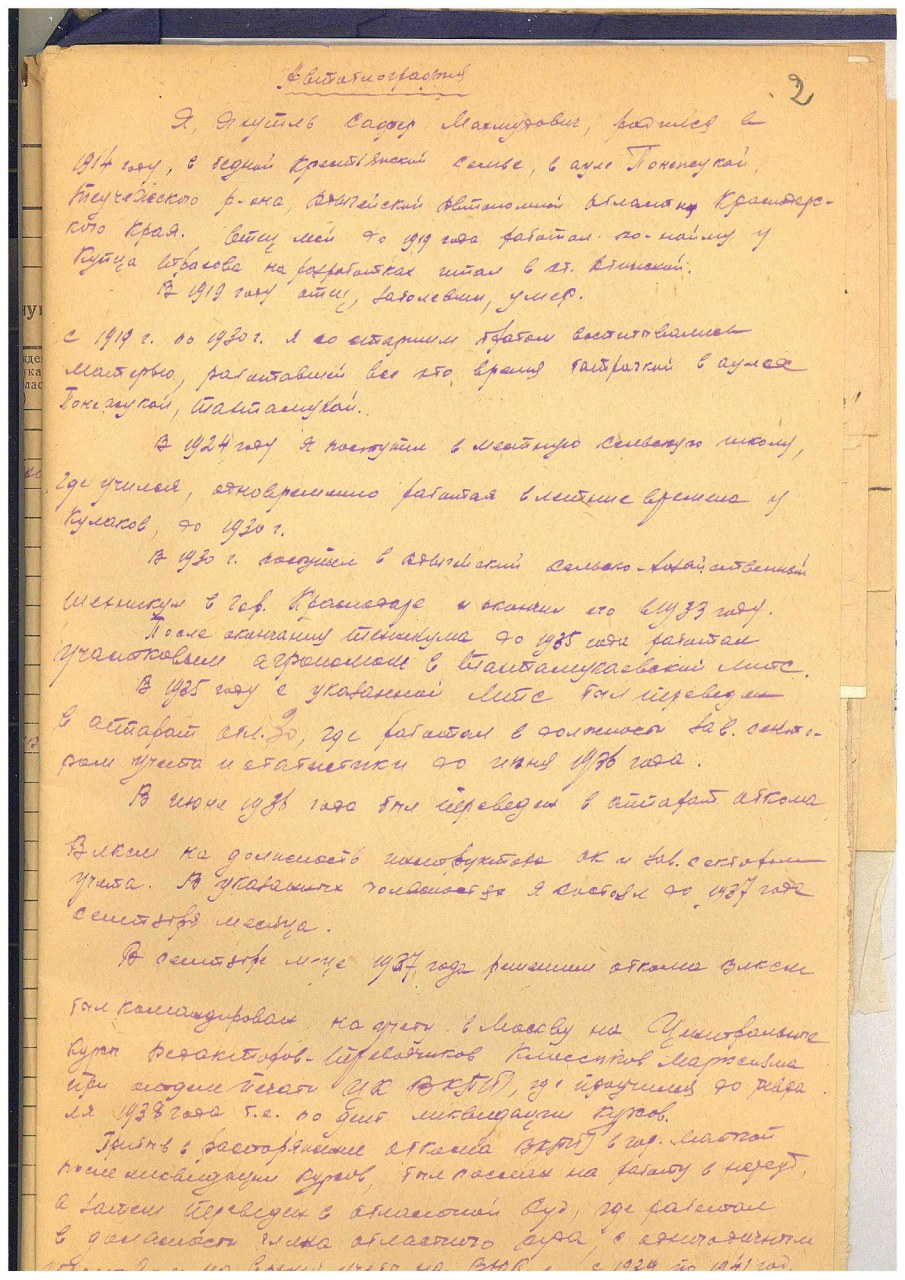 2
Автобиография
Я, Яхутль Сафер Махмудович, родился в
1914 году, в бедной крестьянской семье, в ауле Понежукой,
Теучежского р-она, Адыгейской Автономной области, Краснодарс-
кого края. Отец мой до 1919 года работал по-найму у
купца на разработках в ст.
В 1919 году отец, заболевши, умер.
С 1919 г. по 1930 г. я со старшим братом воспитывались
матерью, работавшей все это время батрачкой в аулах
Понежукой, Тахтамукай.
В 1924 году я поступил в местную сельскую школу,
где учился, одновременно работая в летние времена у
кулаков, до 1930 г.
В 1930 г. поступил в Адыгейский сельско-хозяйственный
техникум в гор. Краснодаре и окончил его в 1933 году.
После окончания техникума до 1935 года работал
участковым агрономом в Тахтамукаевской МТС.
В 1935 году с указанной МТС был переведен
в аппарат, где работал в должности зав. секто-
ром учета и статистики до июня 1936 года.
В июне 1936 года был переведен в аппарат обкома
ВЛКСМ на должность инструктора ОК и зав. сектором
учета. В указанных должностях я состоял до 1937 года
сентября месяца.
В сентябре м-це 1937 года решением обкома ВЛКСМ
был командирован на учебу в Москву на Центральные
курсы редакторов-переводчиков классиков марксизма
при отделе печати ЦК ВКП(б), где проучился до
1938 года т.е. по день ликвидации курсов.
Прибыв в распоряжение обкома ВКП(б) в гор. Майкоп
после ликвидации курсов, был послан на работу в
а затем переведен в областной суд, где работал
в должности члена областного суда, с одногодичным
на время учебы на с по 1941 год.